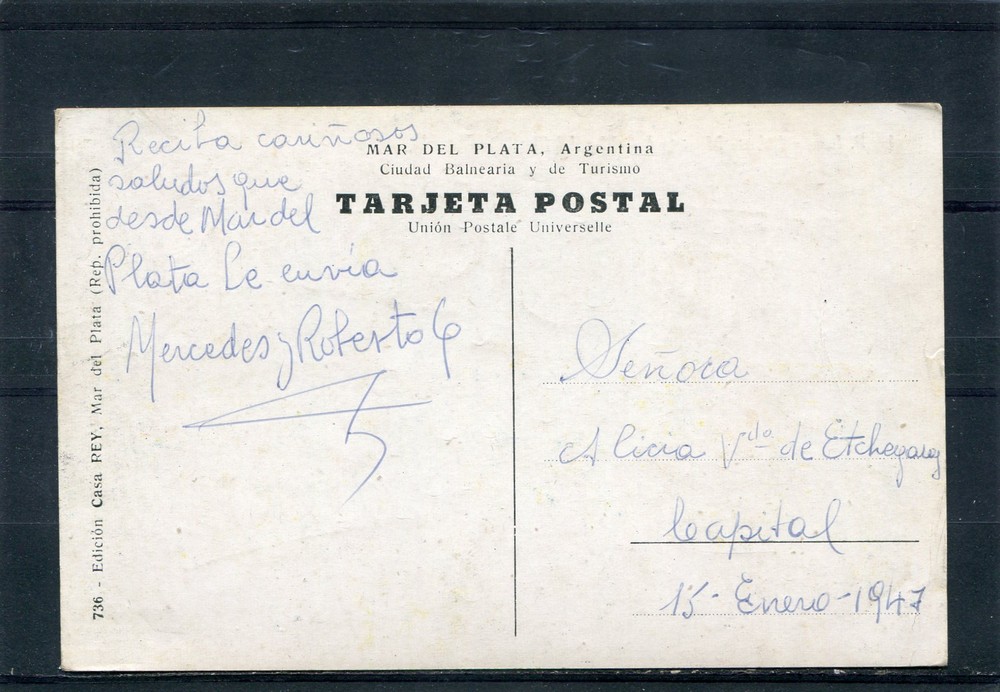 Reciba cariñosos
saludos que
desde Mar del
Plata Le envia
Mercedes y Roberto
MAR DEL PLATA, Argentina
Ciudad Balnearia y de Turismo
TARJETA POSTAL
Unión Postale Universelle
Señora
Alicia Vda de Etchegaray
Capital
15 - Enero - 1947
736 - Edición Casa REY, Mar del Plata (Rep. prohibida)